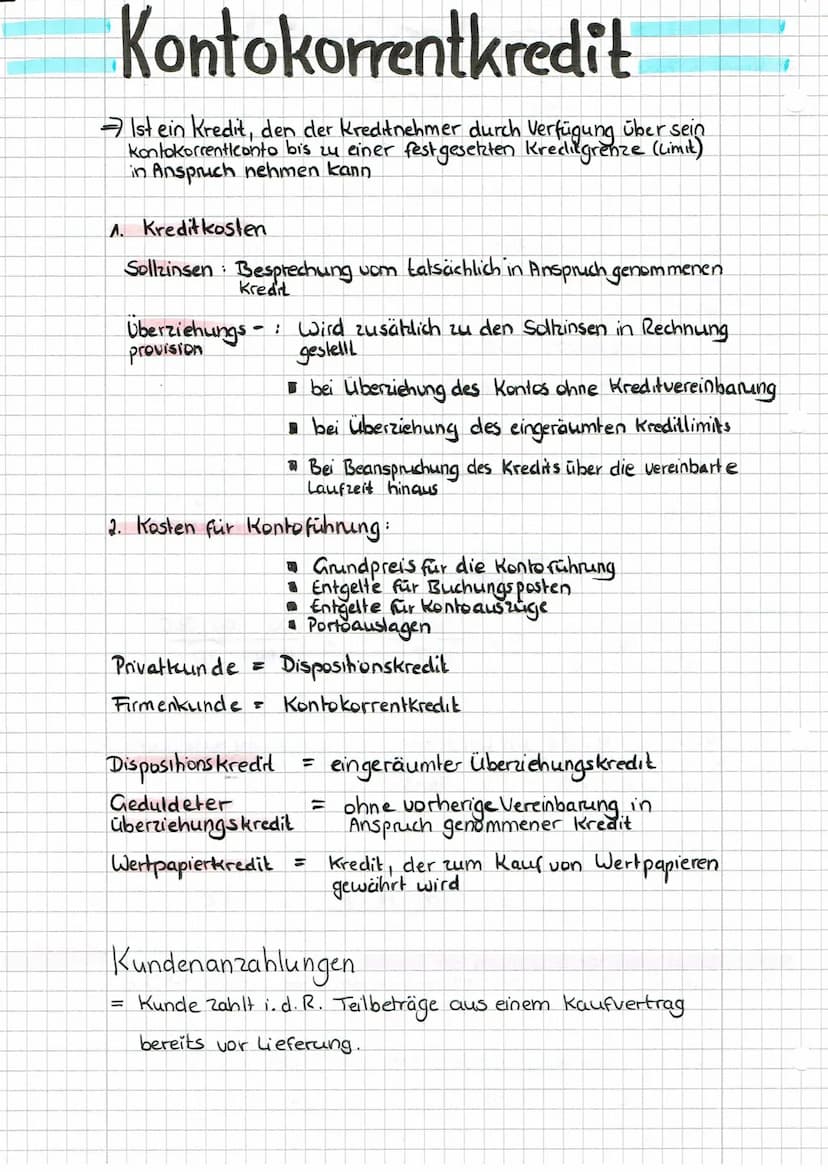 Kontokorrentkredit
→ Ist ein Kredit, den der Kreditnehmer durch Verfügung über sein
Kontokorrentkonto bis zu einer festgesetzten Kreditgrenze (Limit)
in Anspruch nehmen kann
1. Kreditkosten
Sollzinsen : Besprechung vom tatsächlich in Anspruch genommenen
Kredit
Überziehungs- : Wird zusätzlich zu den Sollzinsen in Rechnung
provision gestellt
▪ bei Überziehung des Kontos ohne Kreditvereinbarung
▪ bei Überziehung des eingeräumten Kreditlimits
▪ Bei Beanspruchung des Kredits über die vereinbarte
Laufzeit hinaus
2. Kosten für Kontoführung:
▪ Grundpreis für die Kontoführung
▪ Entgelte für Buchungsposten
▪ Entgelte für Kontoauszüge
▪ Portoauslagen
Privatkunde = Dispositionskredit
Firmenkunde = Kontokorrentkredit
Dispositionskredit = eingeräumter Überziehungskredit
Geduldeter = ohne vorherige Vereinbarung in
überziehungskredit Anspruch genommener Kredit
Wertpapierkredit = Kredit, der zum Kauf von Wertpapieren
gewährt wird
Kundenanzahlungen
= Kunde zahlt i.d.R. Teilbeträge aus einem Kaufvertrag
bereits vor Lieferung.